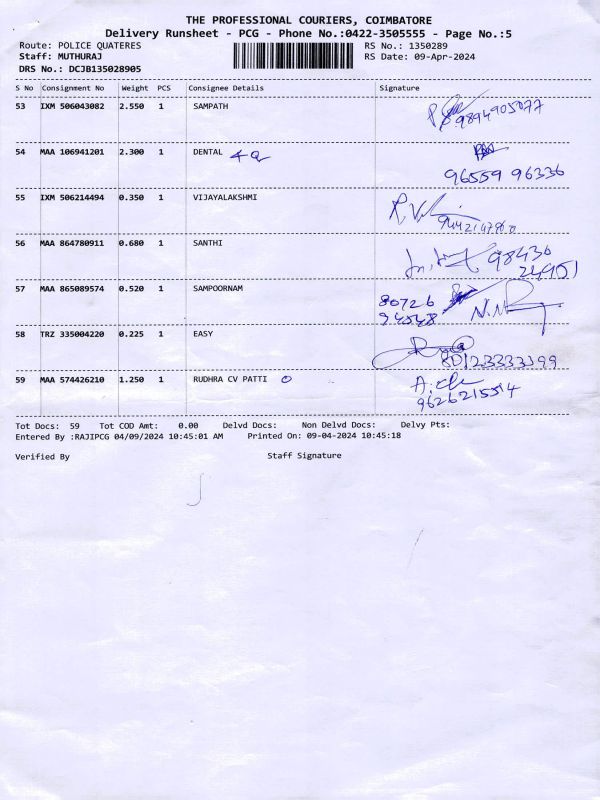 THE PROFESSIONAL COURIERS, COIMBATORE
Delivery Runsheet - PCG - Phone No.:0422-3505555 - Page No.:5
Route: POLICE QUATERES RS No.: 1350289
Staff: MUTHURAJ RS Date: 09-Apr-2024
DRS No.: DCJB135028905
S No Consignment No Weight PCS Consignee Details Signature
53 IXM 506043082 2.550 1 SAMPATH
9894905077
54 MAA 106941201 2.300 1 DENTAL
96559 96336
55 IXM 506214494 0.350 1 VIJAYALAKSHMI
56 MAA 864780911 0.680 1 SANTHI 98436
24951
57 MAA 865089574 0.520 1 SAMPOORNAM 80726
94548
58 TRZ 335004220 0.225 1 EASY
59 MAA 574426210 1.250 1 RUDHRA CV PATTI
9626215514
Tot Docs: 59 Tot COD Amt: 0.00 Delvd Docs: Non Delvd Docs: Delvy Pts:
Entered By :RAJIPCG 04/09/2024 10:45:01 AM Printed On: 09-04-2024 10:45:18
Verified By Staff Signature